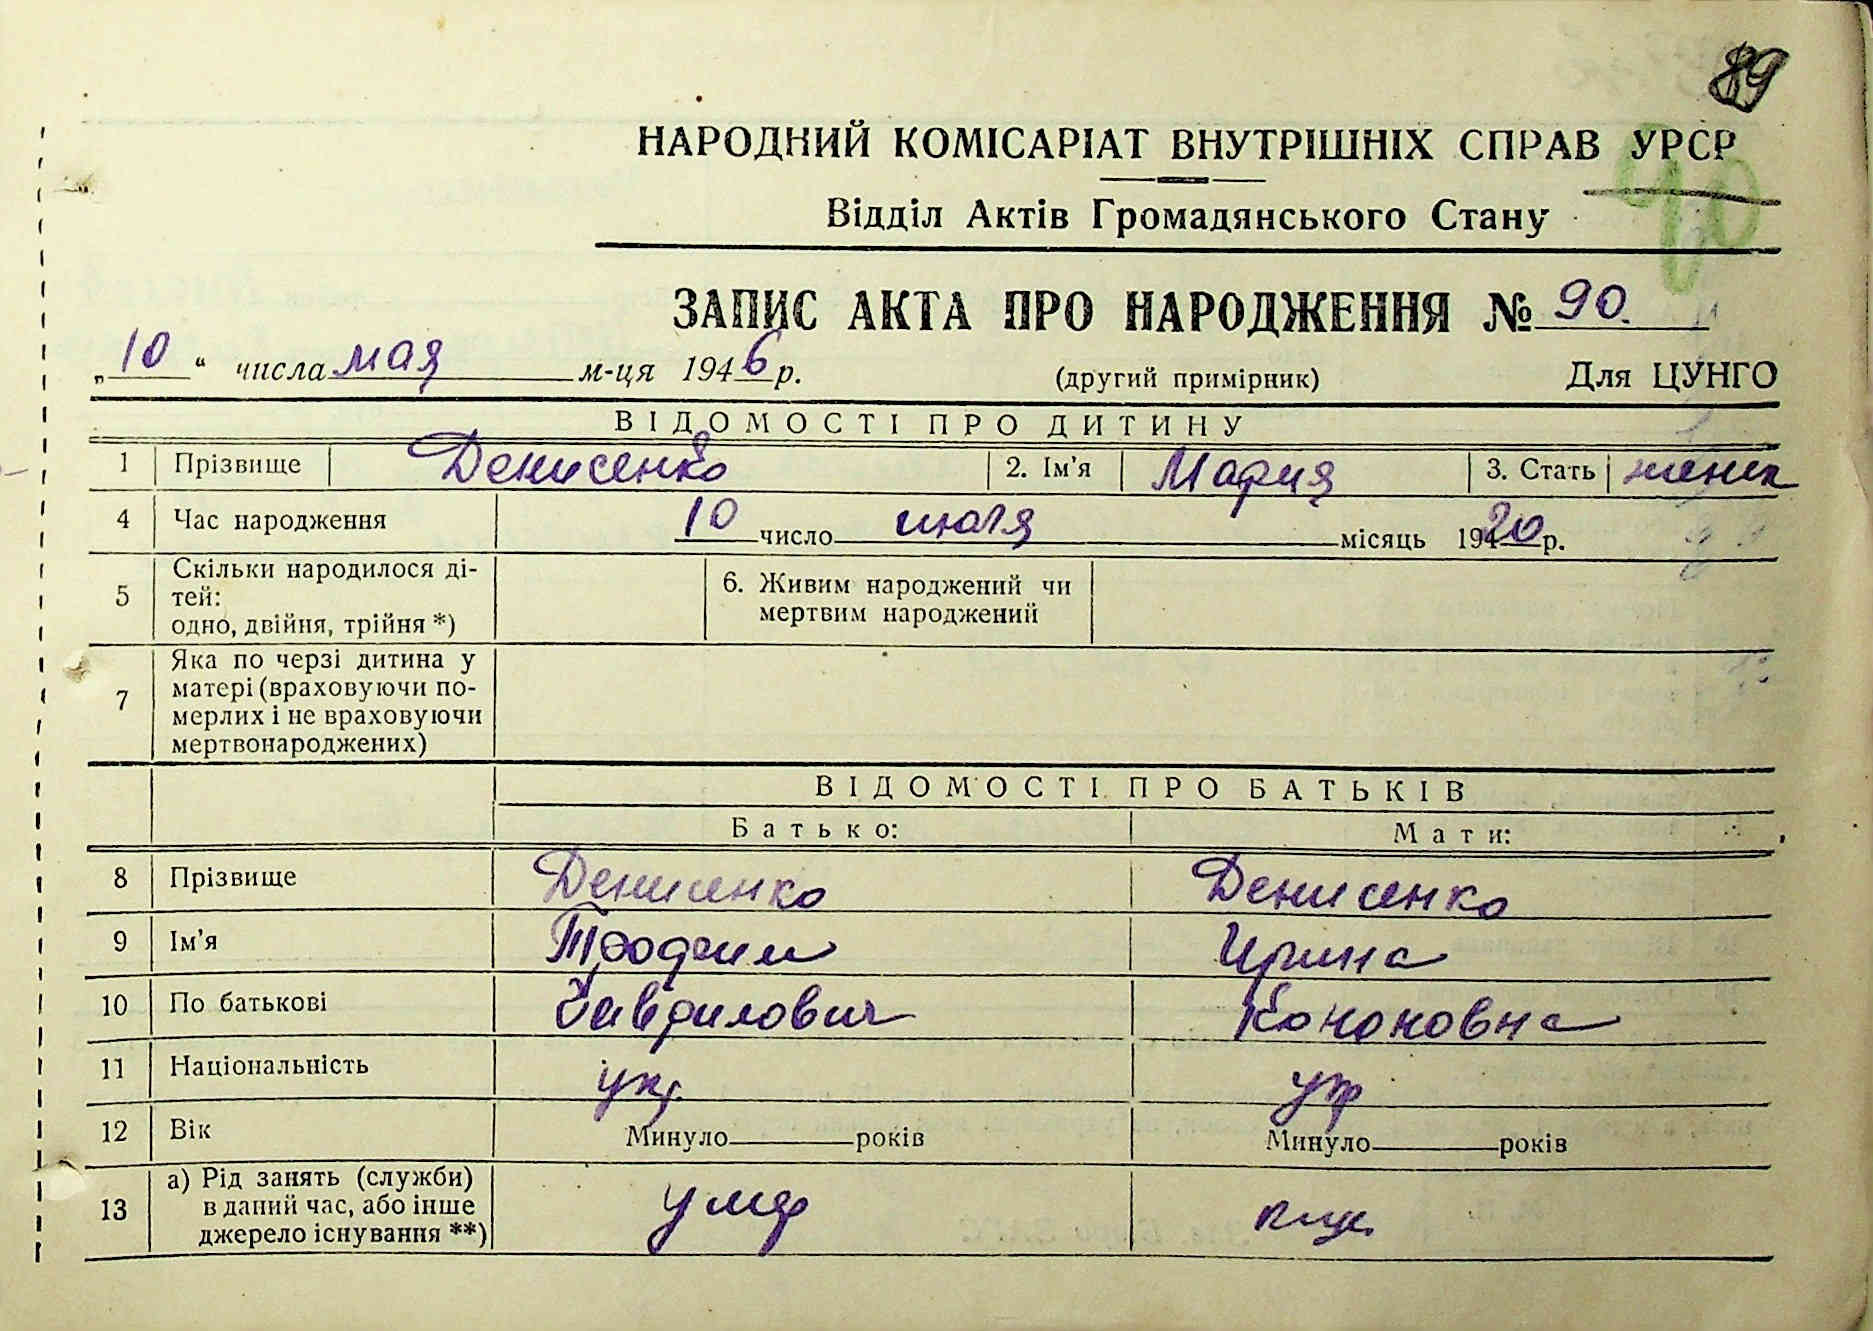 89
НАРОДНИЙ КОМІСАРІАТ ВНУТРІШНІХ СПРАВ УРСР
90
Відділ Актів Громадянського Стану
ЗАПИС АКТА ПРО НАРОДЖЕННЯ № 90.
„10“ числа мая м-ця 1946 р.
(другий примірник) Для ЦУНГО
ВІДОМОСТІ ПРО ДИТИНУ
1 Прізвище Денисенко 2. Ім'я Мария 3. Стать женск
4 Час народження 10 число июля місяць 1920 р.
5 Скільки народилося ді-
тей:
одно, двійня, трійня *)
6. Живим народжений чи
мертвим народжений
7 Яка по черзі дитина у
матері (враховуючи по-
мерлих і не враховуючи
мертвонароджених)
ВІДОМОСТІ ПРО БАТЬКІВ
Батько: Мати:
8 Прізвище Денисенко Денисенко
9 Ім'я Трофим Ирина
10 По батькові Гаврилович Кононовна
11 Національність укр. укр
12 Вік Минуло років Минуло років
13 а) Рід занять (служби)
в даний час, або інше
джерело існування **)
умер